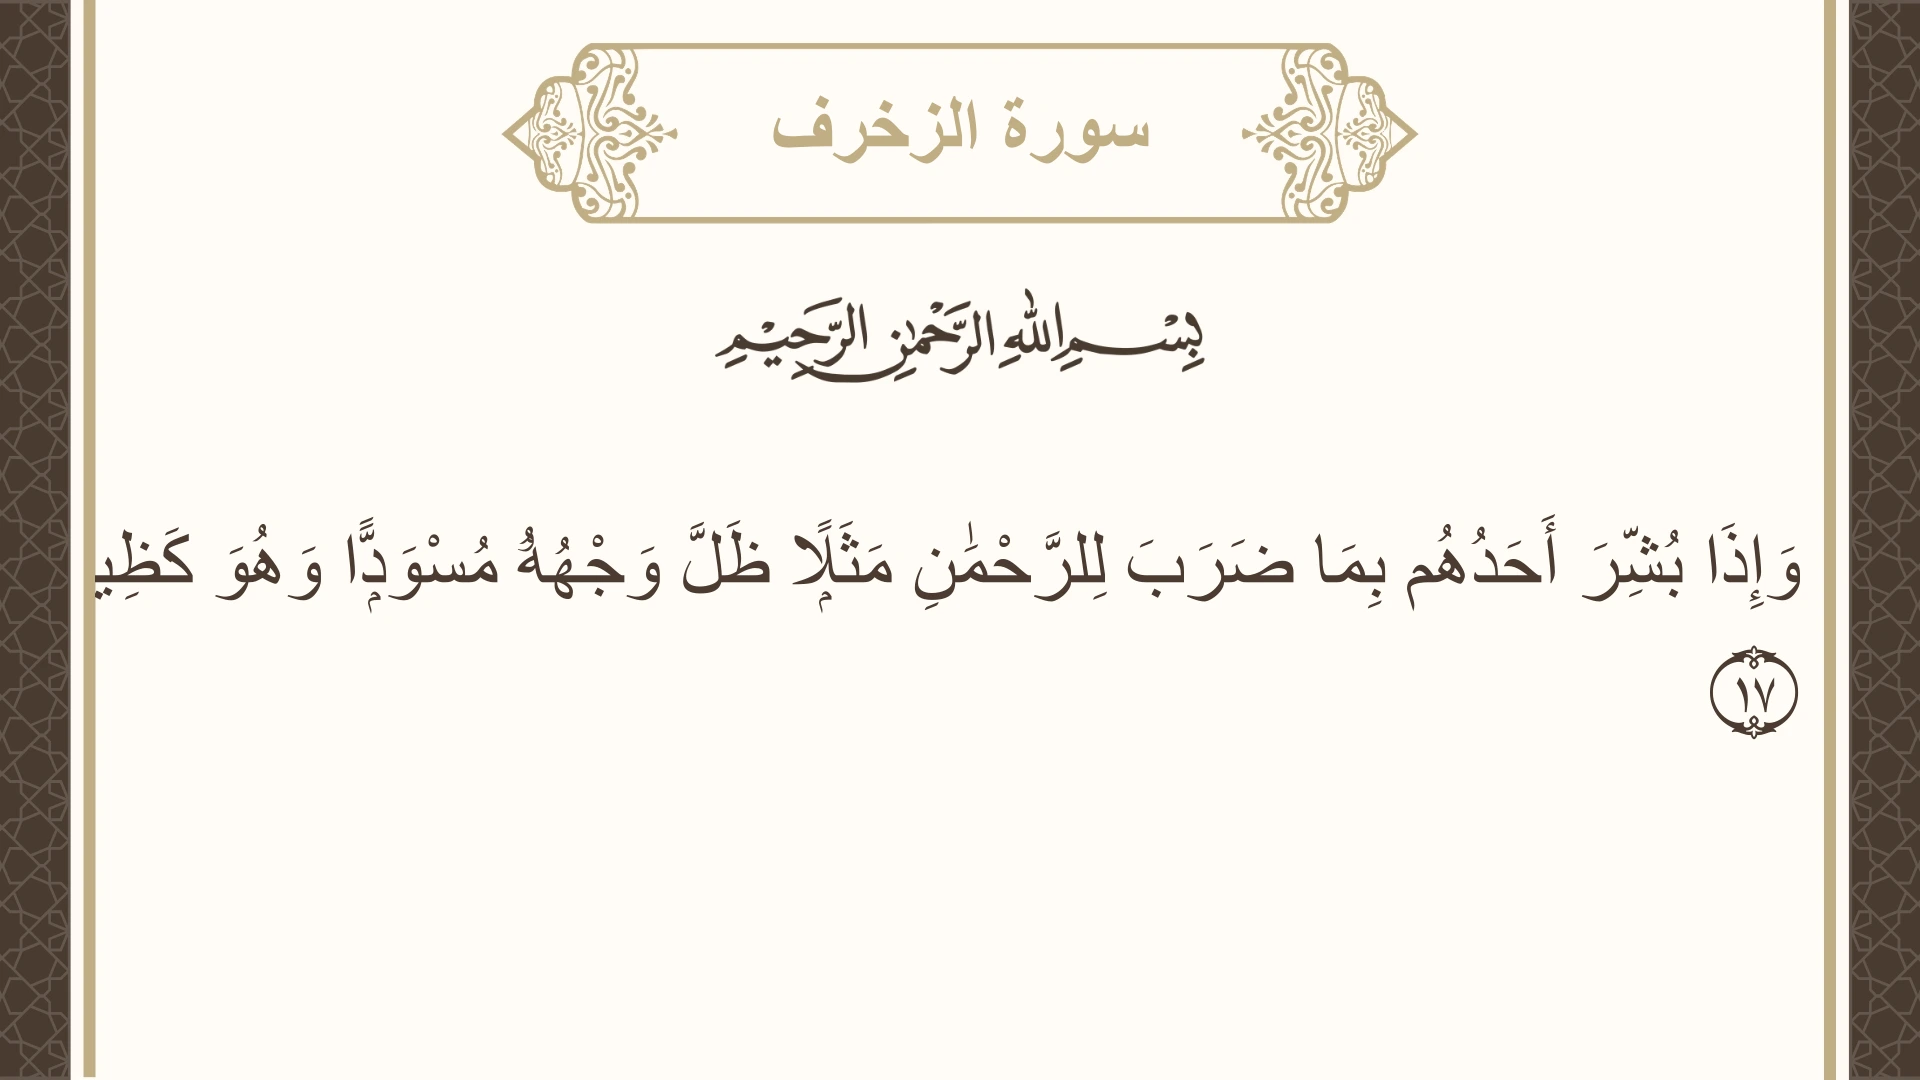 سورة الزخرف
بِسْمِ اللهِ الرَّحْمٰنِ الرَّحِيْمِ
وَإِذَا بُشِّرَ أَحَدُهُم بِمَا ضَرَبَ لِلرَّحْمَٰنِ مَثَلًۭا ظَلَّ وَجْهُهُۥ مُسْوَدًّۭا وَهُوَ
١٧